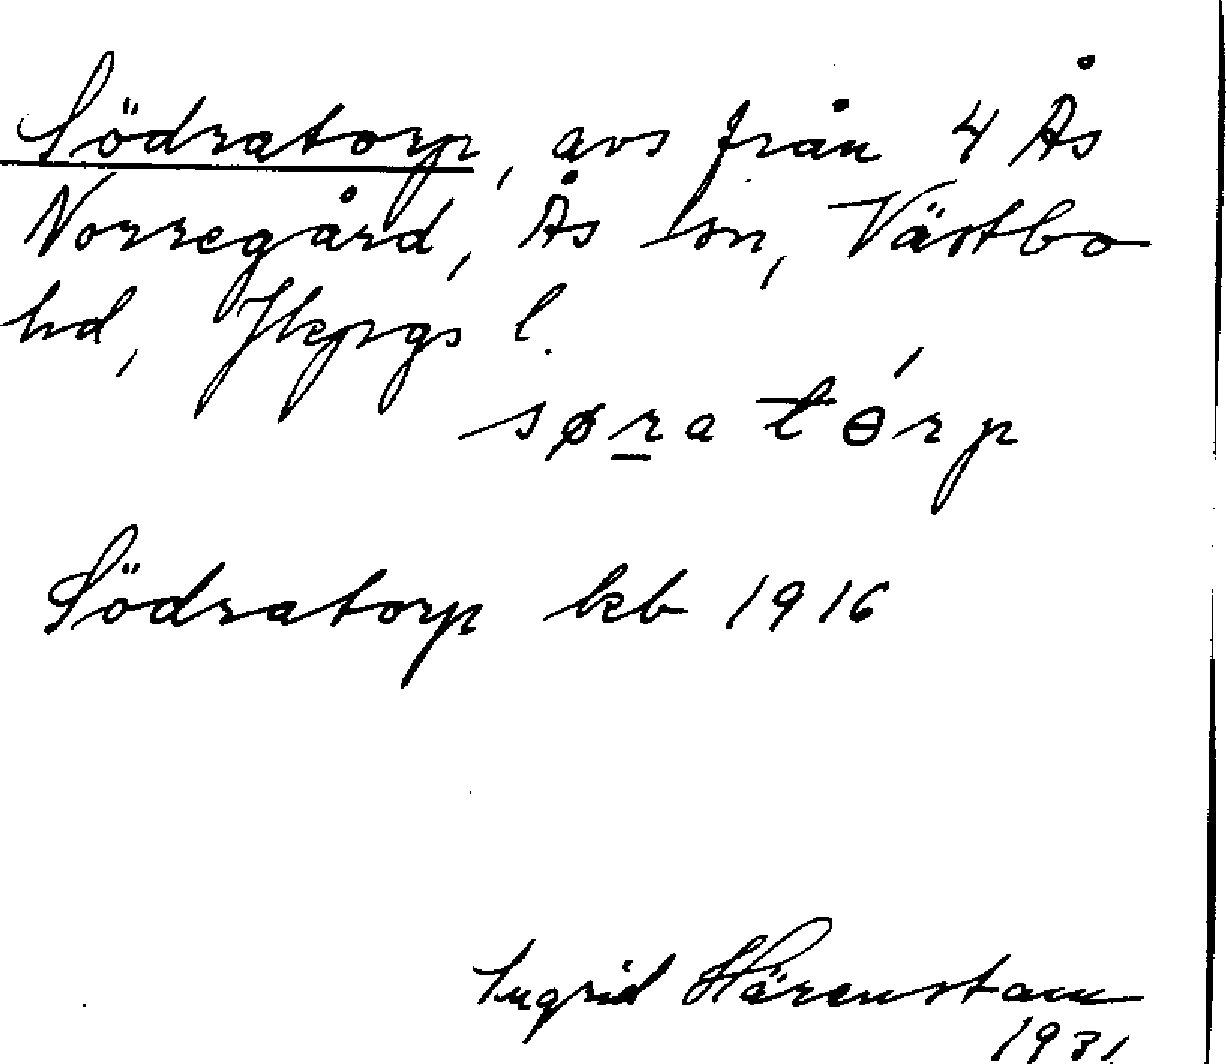 Södratorp, avs från 4 Ås
Norregård, Ås sn, Västbo
hd, Jkpgs l.
søratǿrp
Södratorp kb 1916
Ingrid Härenstam
1931